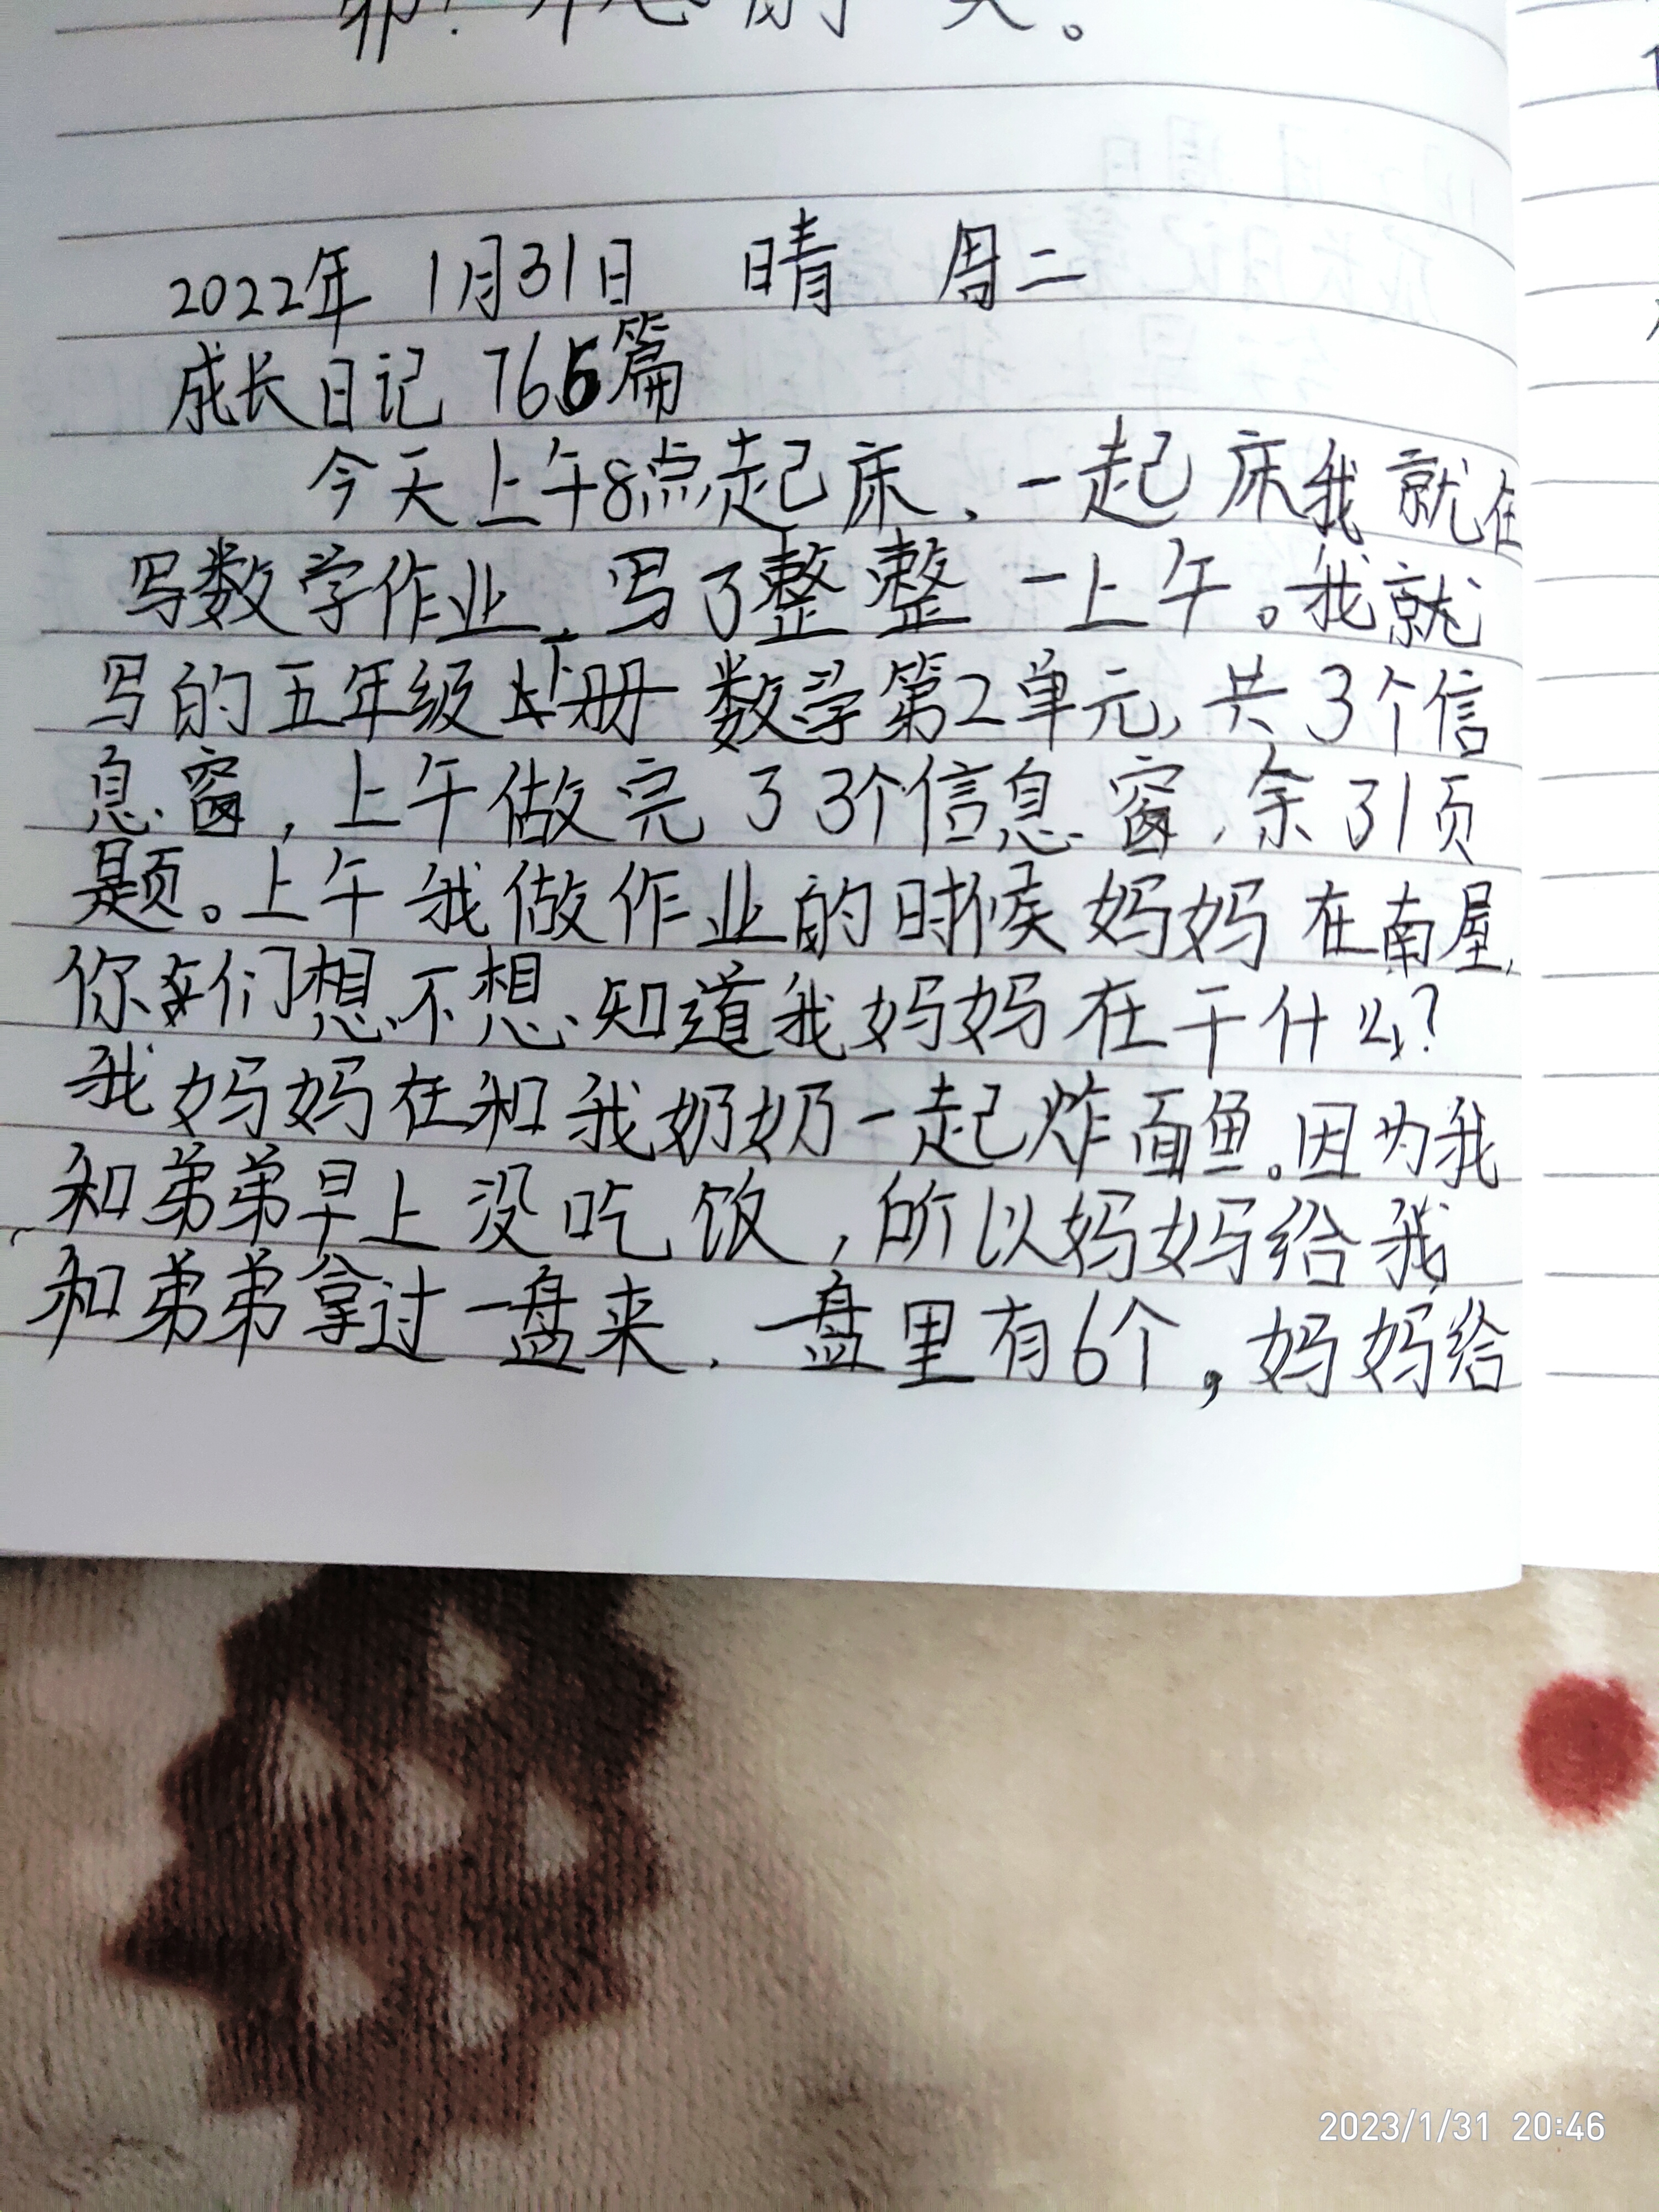 开心的一天。
2022年 1月31日 晴 周二
成长日记 766篇
今天上午8点起床，一起床我就在
写数学作业，写了整整一上午。我就
写的五年级下册数学第2单元，共3个信
息窗，上午做完了3个信息窗，余了1页
题。上午我做作业的时候妈妈在南屋，
你们想不想知道我妈妈在干什么？
我妈妈在和我奶奶一起炸面鱼。因为我
和弟弟早上没吃饭，所以妈妈给我
和弟弟拿过一盘来，一盘里有6个，妈妈给
2023/1/31 20:46